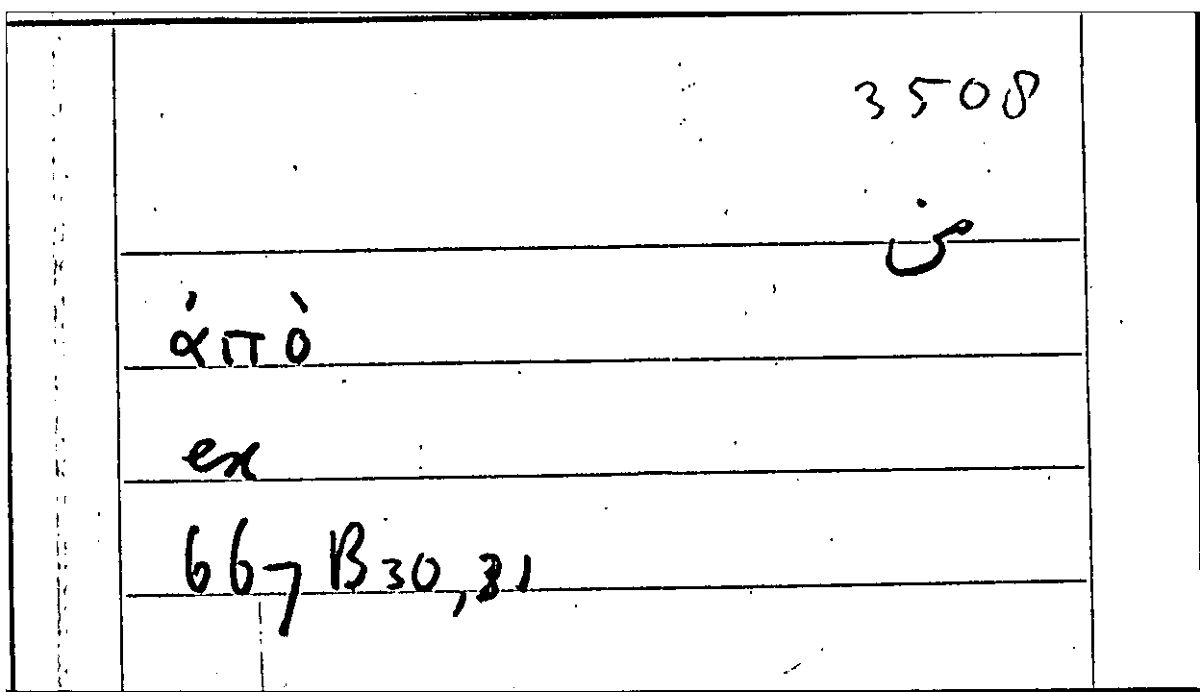 3508
من
ἀπὸ
ex
667 B30,31